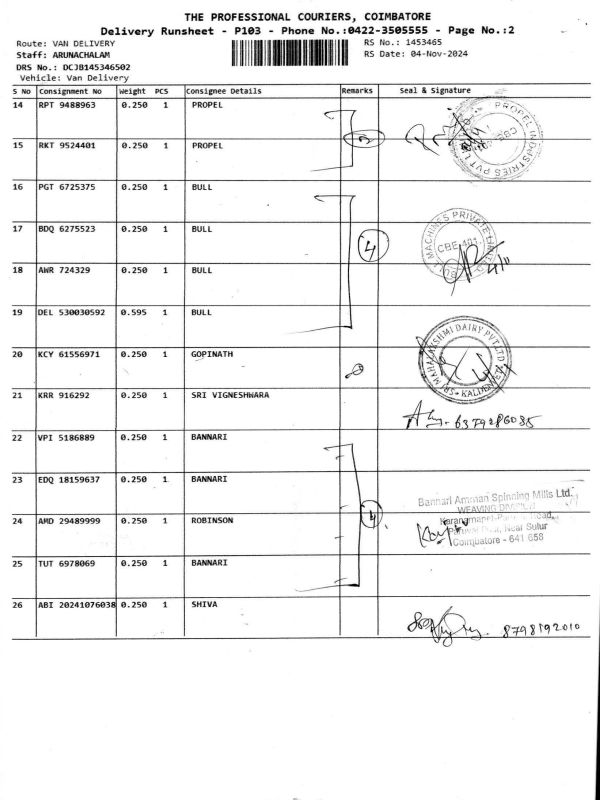 THE PROFESSIONAL COURIERS, COIMBATORE
Delivery Runsheet - P103 - Phone No.:0422-3505555 - Page No.:2
Route: VAN DELIVERY RS No.: 1453465
Staff: ARUNACHALAM RS Date: 04-Nov-2024
DRS No.: DCJB145346502
Vehicle: Van Delivery
S No Consignment No Weight PCS Consignee Details Remarks Seal & Signature
14 RPT 9488963 0.250 1 PROPEL
PROPEL INDUSTRIES PVT L
3
15 RKT 9524401 0.250 1 PROPEL
16 PGT 6725375 0.250 1 BULL
17 BDQ 6275523 0.250 1 BULL
MACHINES PRIVATE
CBE
4
18 AWR 724329 0.250 1 BULL
4/11
19 DEL 530030592 0.595 1 BULL
20 KCY 61556971 0.250 1 GOPINATH
MAHALAKSHMI DAIRY PVT LTD
21 KRR 916292 0.250 1 SRI VIGNESHWARA
6379286035
22 VPI 5186889 0.250 1 BANNARI
23 EDQ 18159637 0.250 1 BANNARI
Bannari Amman Spinning Mills Ltd.
WEAVING DIVISION
24 AMD 29489999 0.250 1 ROBINSON
4
Road,
Near Sulur
Coimbatore - 641 658
25 TUT 6978069 0.250 1 BANNARI
26 ABI 20241076038 0.250 1 SHIVA
8798192010